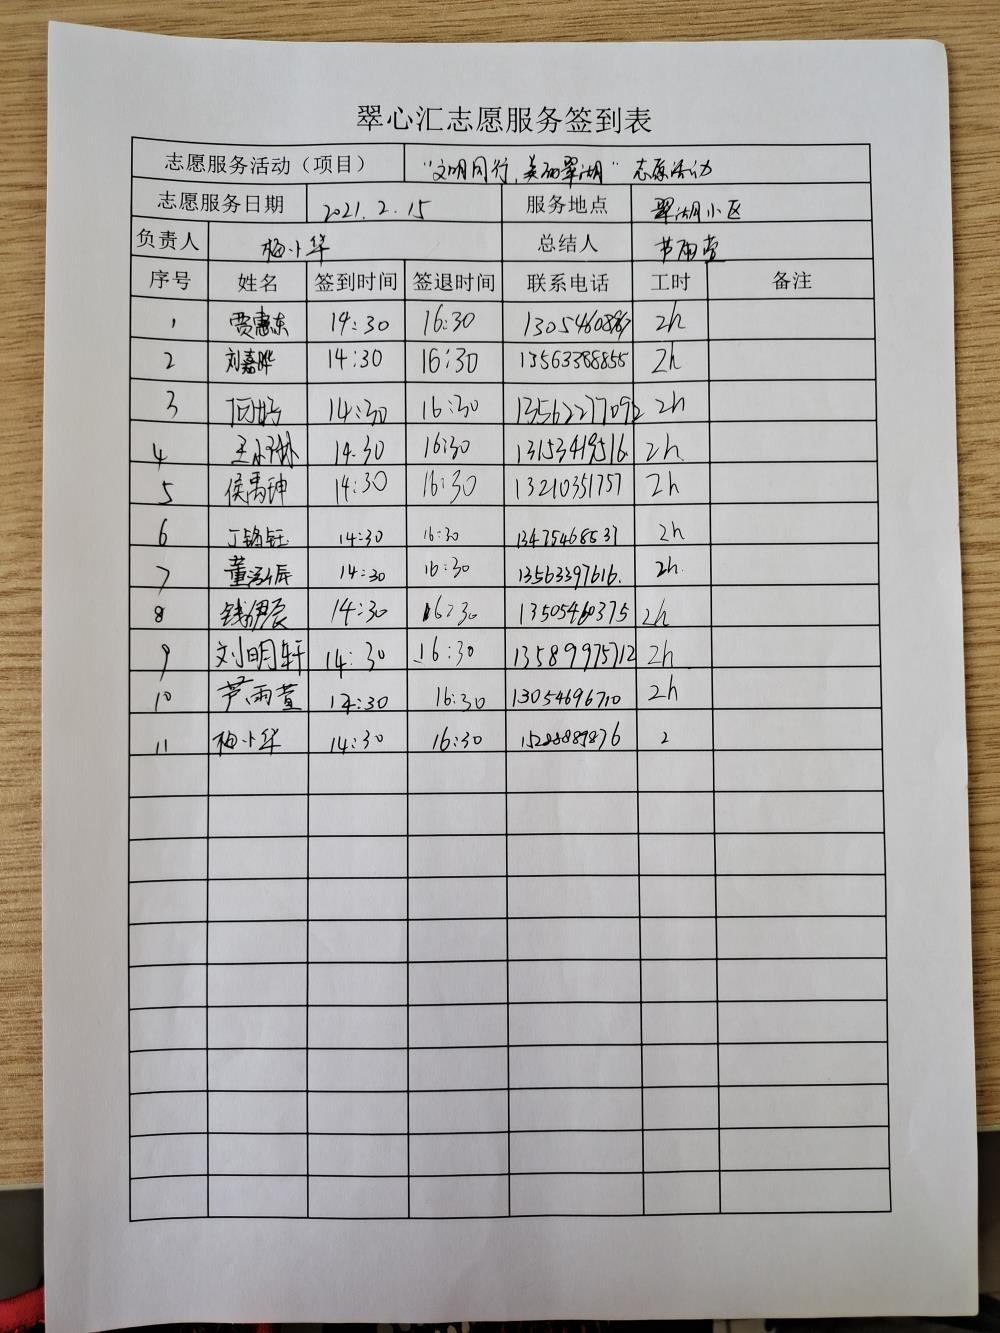 翠心汇志愿服务签到表
志愿服务活动（项目） “文明同行，美丽翠湖”志愿活动
志愿服务日期 2021.2.15 服务地点 翠湖小区
负责人 梅小华 总结人 芦雨萱
序号 姓名 签到时间 签退时间 联系电话 工时 备注
1 贾惠东 14:30 16:30 2h
2 刘嘉晔 14:30 16:30 13563388855 2h
3 14:30 16:30 13562277092 2h
4 14:30 16:30 13153419516 2h
5 侯禹珅 14:30 16:30 13210351757 2h
6 丁铭钰 14:30 16:30 13475468537 2h
7 14:30 16:30 13563397616. 2h.
8 钱伊辰 14:30 16:30 13505460375 2h
9 刘明轩 14:30 16:30 13589975712 2h
10 芦雨萱 14:30 16:30 13054696710 2h
11 梅小华 14:30 16:30 2